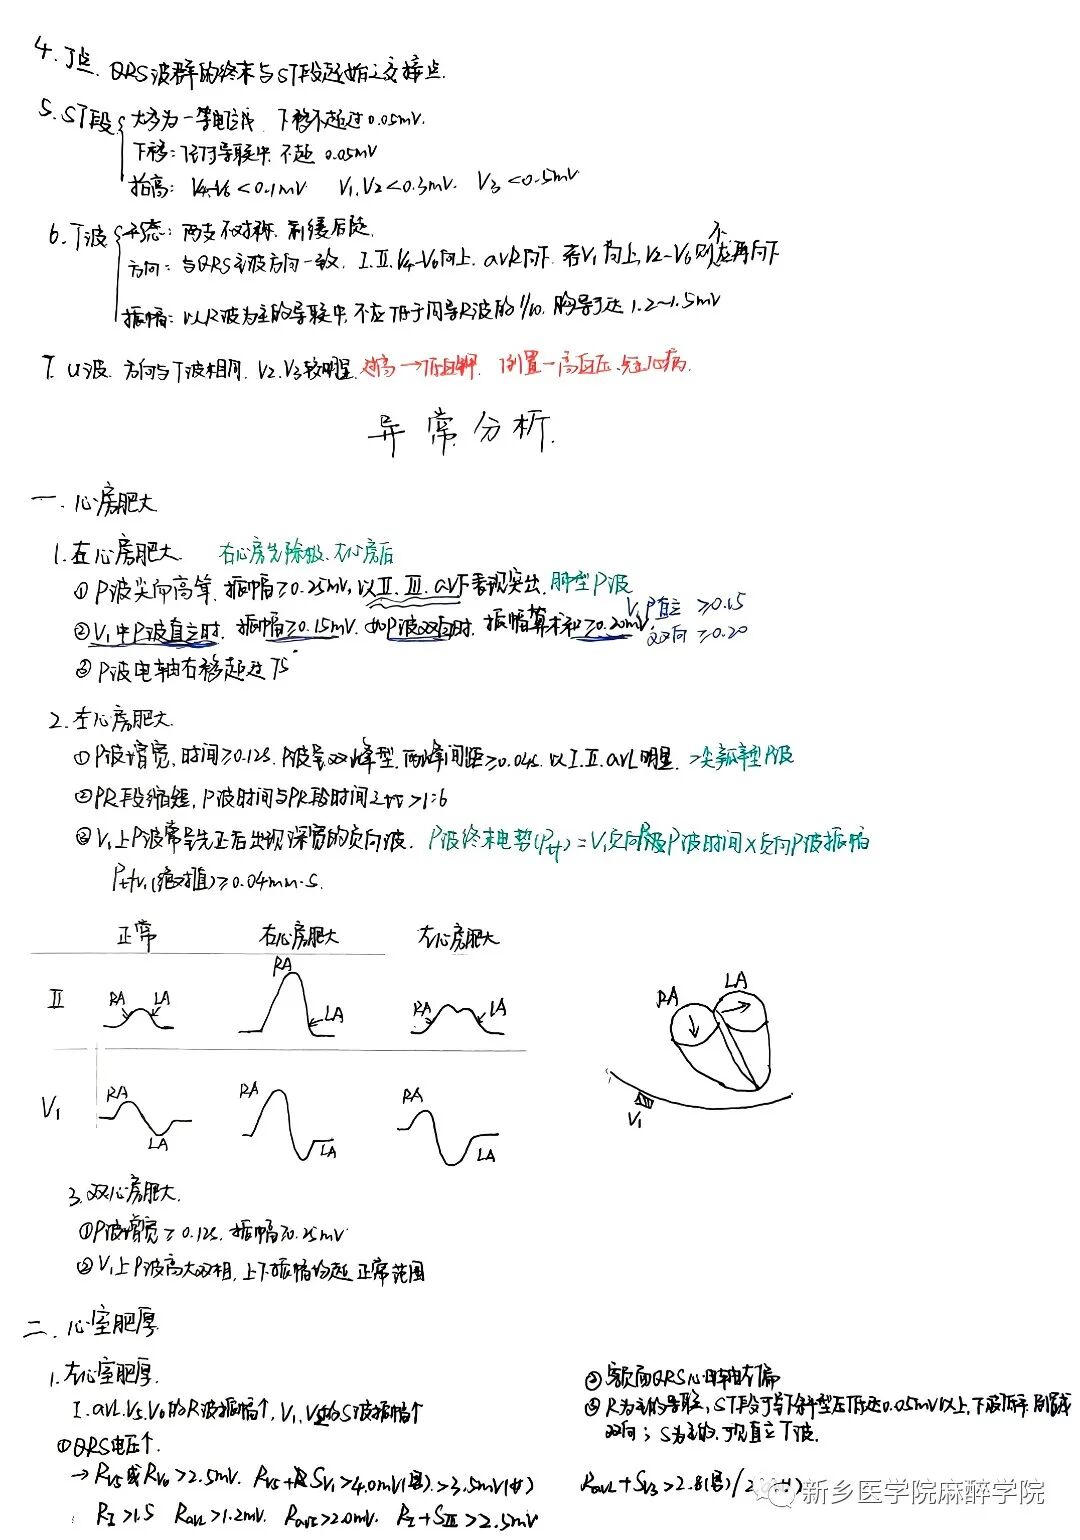 4. J点. QRS波群的终末与ST段起始之交接点.
5. ST段 大多为一等电位线. 下移不超过0.05mV.
下移: 任何导联中, 不超 0.05mV
抬高: V4-V6<0.1mV V1.V2<0.3mV. V3<0.5mV
6. T波 形态: 两支不对称. 前缓后陡.
方向: 与QRS主波方向一致. I.II.V4-V6向上. aVR向下. 若V1向上, V2-V6则不应再向下
振幅: 以R波为主的导联中, 不应低于同导R波的1/10. 胸导可达 1.2~1.5mV
7. U波. 方向与T波相同. V2.V3较明显. 过高→低血钾. 倒置-高血压.冠心病.
异常分析.
一. 心房肥大
1. 右心房肥大. 右心房先除极.左心房后
① P波尖而高耸. 振幅≥0.25mV, 以II.III.aVF表现突出. 肺型P波
② V1中P波直立时. 振幅≥0.15mV. 如P波双向时. 振幅算术和≥0.20mV. V1P直立 ≥0.15
双向 ≥0.20
③ P波电轴右移超过75°
2. 左心房肥大.
① P波增宽, 时间≥0.12s. P波呈双峰型. 两峰间距≥0.04s. 以I.II.aVL明显. >二尖瓣型P波
② PR段缩短, P波时间与PR段时间之比>1.6
③ V1上P波常呈先正后出现深宽的负向波. P波终末电势(Ptf)=V1负向P波时间×负向P波振幅
PtfV1(绝对值)≥0.04mm·s.
正常 右心房肥大 左心房肥大
II RA LA RA LA RA LA
V1 RA LA RA LA RA LA
RA LA
V1
3. 双心房肥大.
① P波增宽≥0.12s. 振幅≥0.25mV
② V1上P波高大双相, 上下振幅均超正常范围
二. 心室肥厚
1. 左心室肥厚.
I.aVL.V5.V6的R波振幅↑, V1.V2的S波振幅↑
① QRS电压↑.
→ RV5或RV6>2.5mV. RV5+SV1>4.0mV(男).>3.5mV(女)
RI>1.5 RaVL>1.2mV. RaVF>2.0mV. RI+SIII>2.5mV
② 额面QRS心电轴左偏
③ R为主的导联, ST段可呈下斜型压低达0.05mV以上, T波低平.倒置或
双向; S为主的, 可见直立T波.
RaVL+SV3>2.8(男)/
新乡医学院麻醉学院